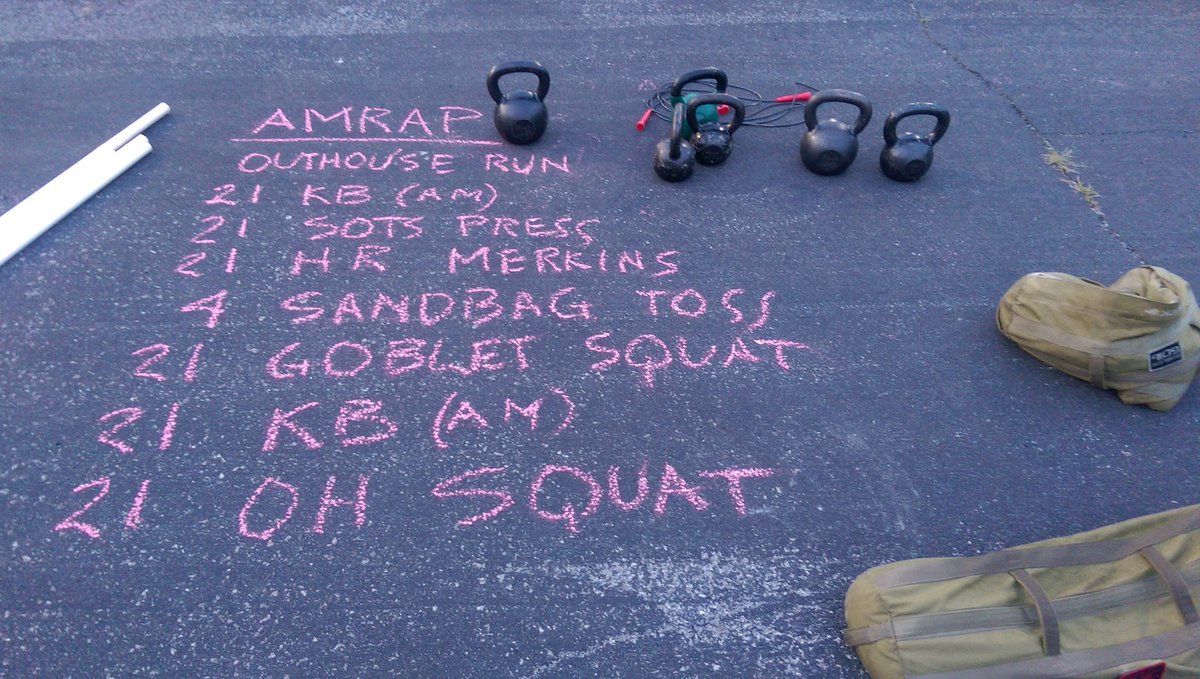 AMRAP
OUTHOUSE RUN
21 KB (AM)
21 SOTS PRESS
21 HR MERKINS
4 SANDBAG TOSS
21 GOBLET SQUAT
21 KB (AM)
21 OH SQUAT